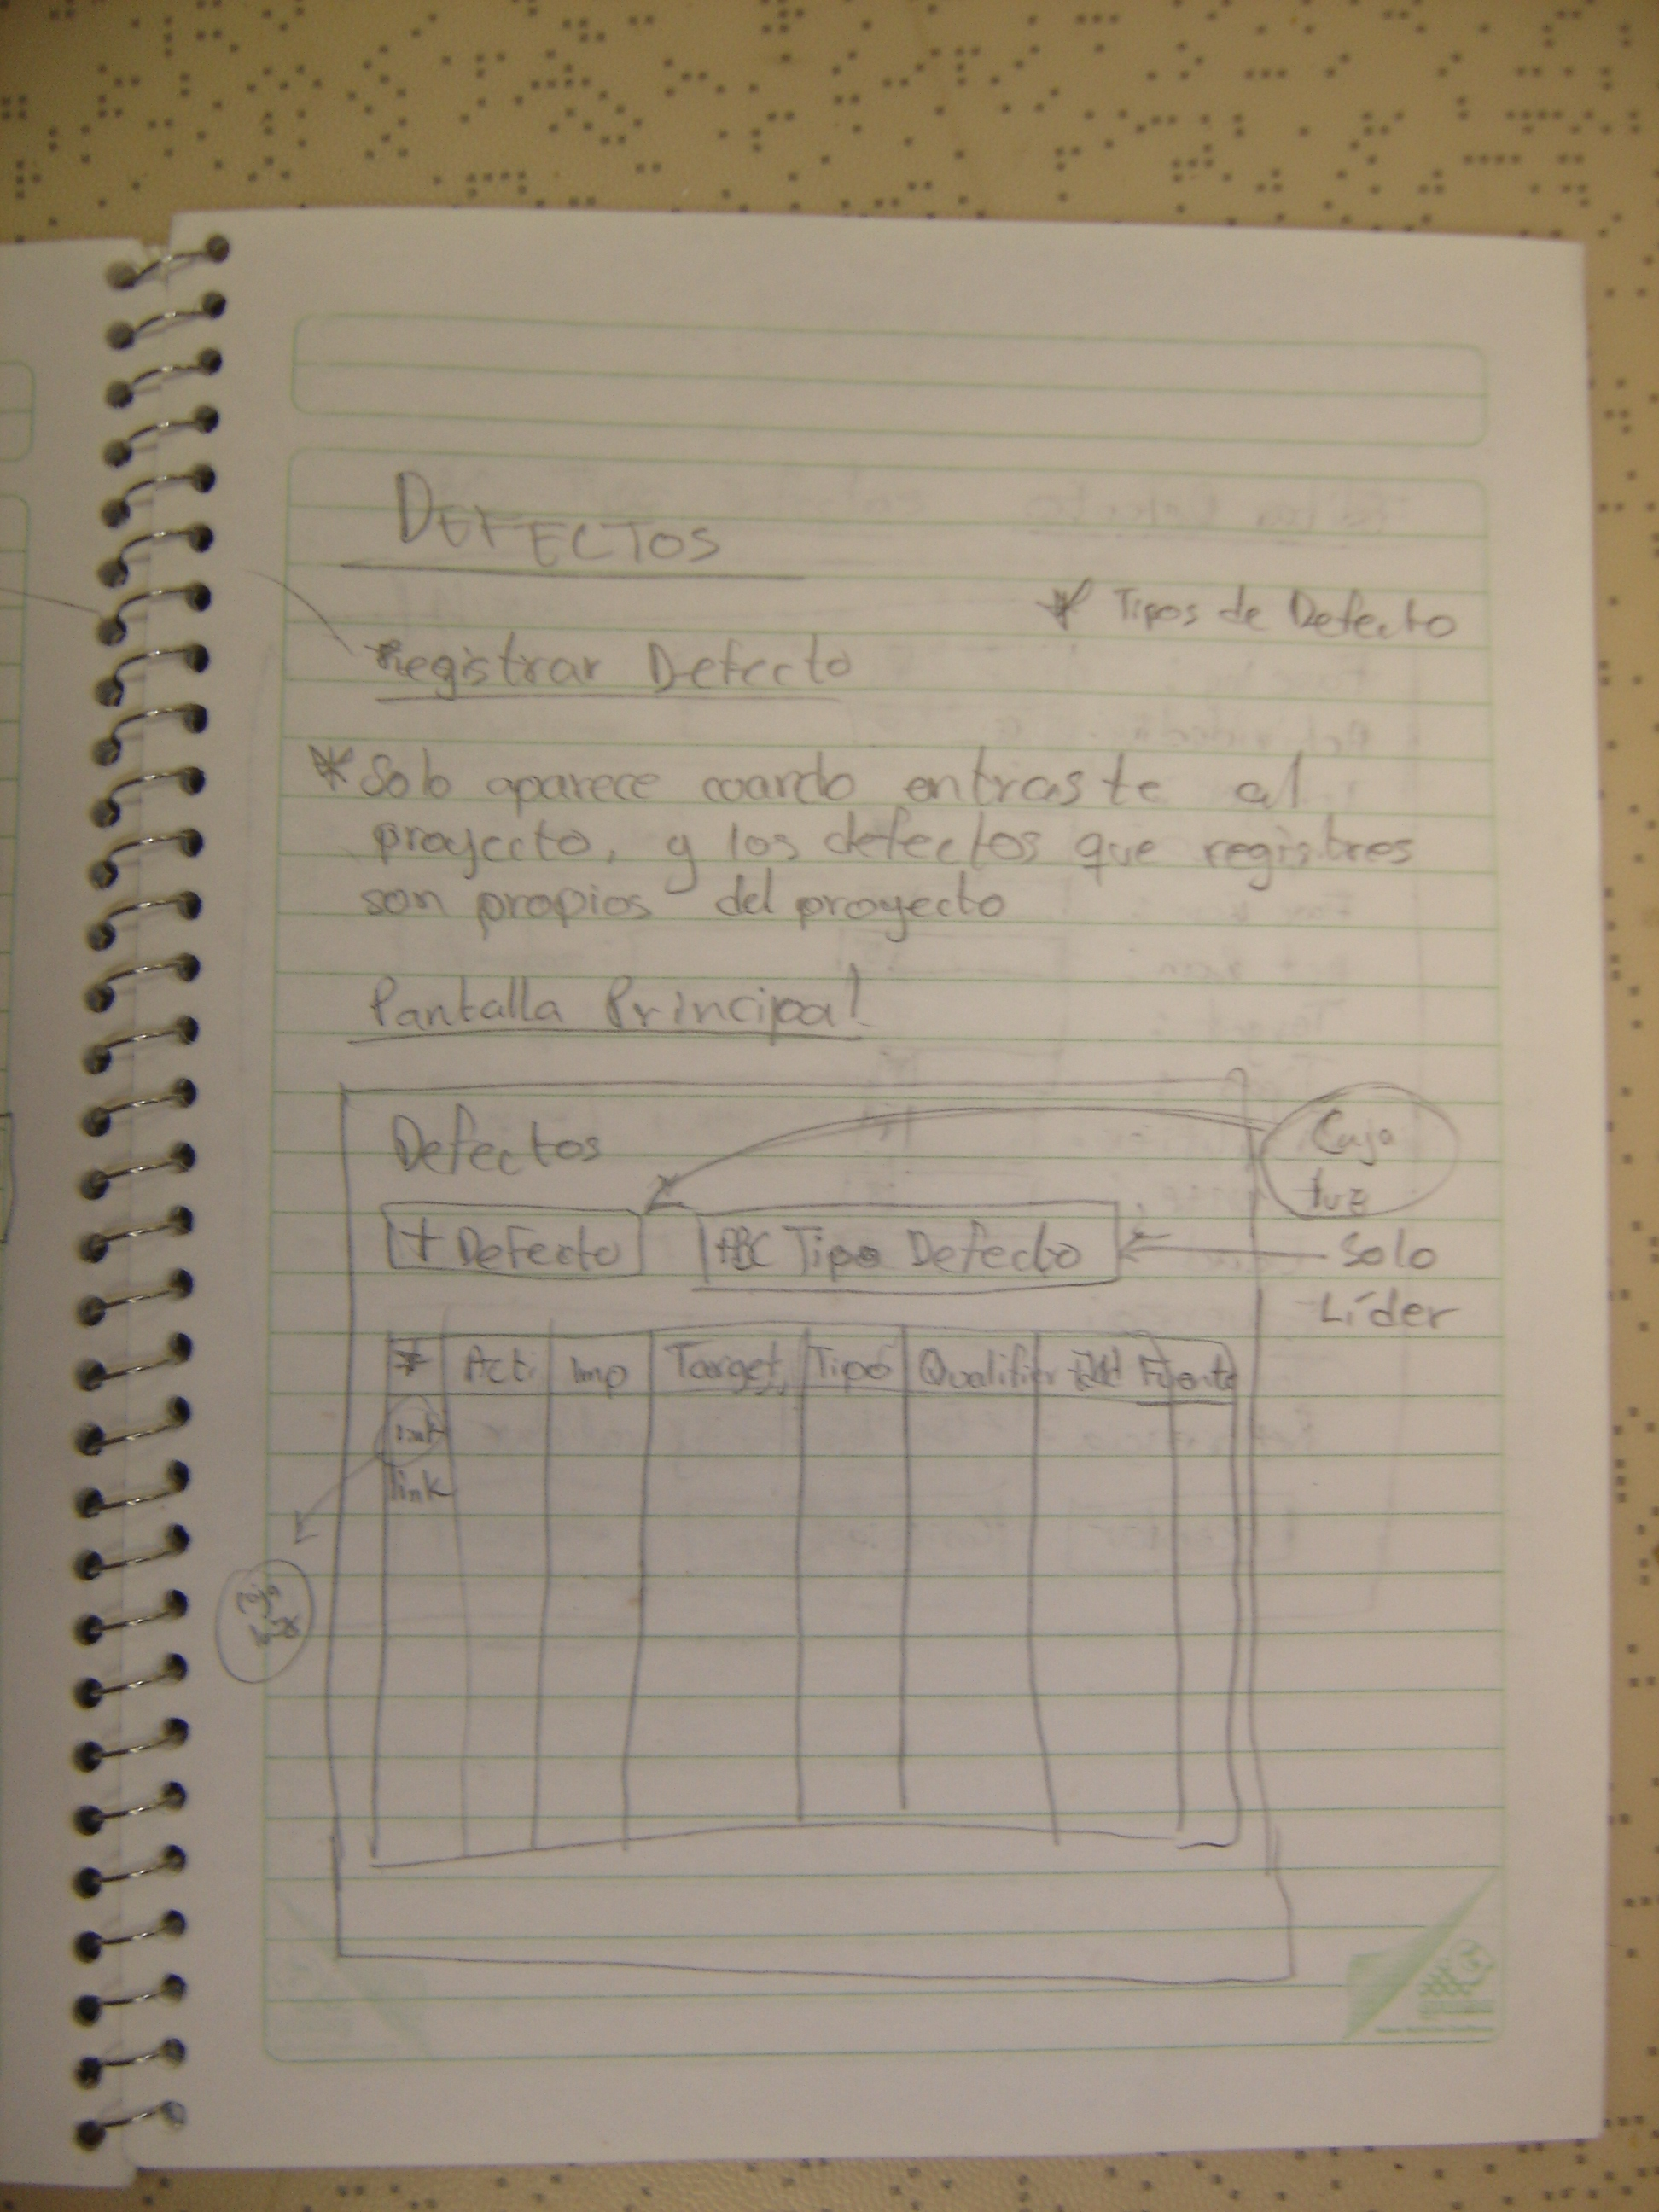 DEFECTOS
* Tipos de Defecto
Registrar Defecto
* Solo aparece cuando entraste al
proyecto, y los defectos que registres
son propios del proyecto
Pantalla Principal
Defectos
Caja
luz
+ Defecto
ABC Tipo Defecto
Solo
Líder
* Acti Imp Target Tipo Qualifier Fuente
link
link